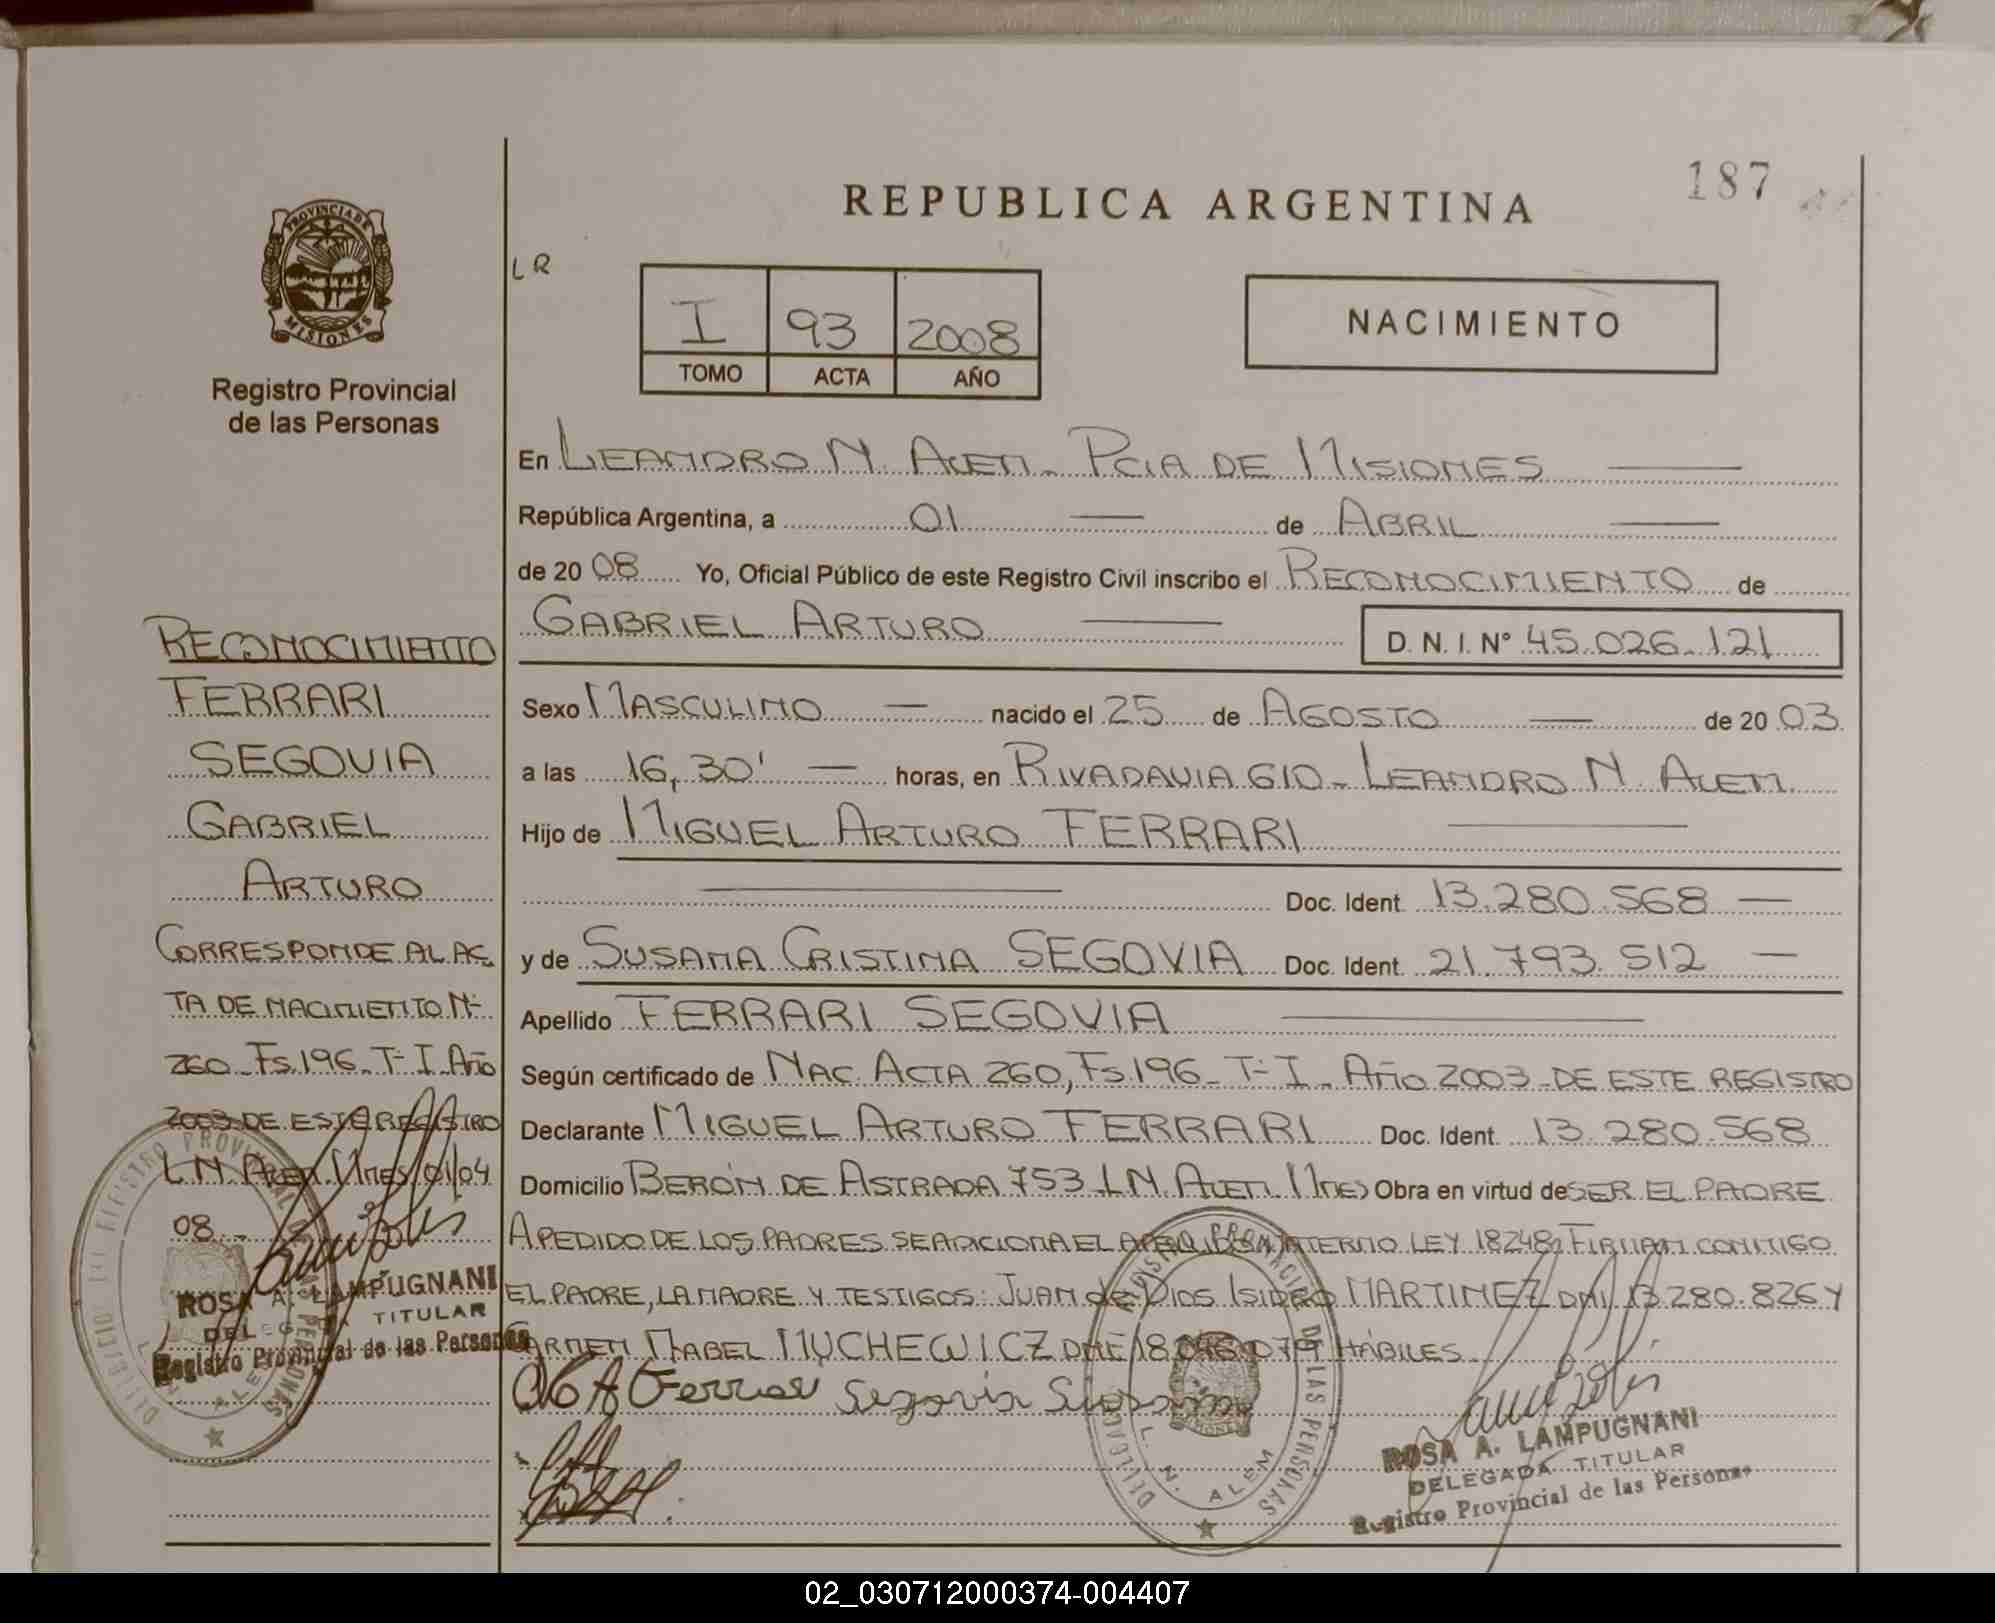 187
REPUBLICA ARGENTINA
PROVINCIA DE MISIONES
Registro Provincial
de las Personas
LR
I 93 2008
TOMO ACTA AÑO
NACIMIENTO
En LEANDRO N. ALEM. PCIA DE MISIONES
República Argentina, a 01 de ABRIL
de 2008 Yo, Oficial Público de este Registro Civil inscribo el RECONOCIMIENTO de
GABRIEL ARTURO D. N. I. Nº 45.026.121
Sexo MASCULINO nacido el 25 de AGOSTO de 2003
a las 16,30' horas, en RIVADAVIA 610 - LEANDRO N. ALEM.
Hijo de MIGUEL ARTURO FERRARI
Doc. Ident 13.280.568
y de SUSANA CRISTINA SEGOVIA Doc. Ident. 21.793.512
Apellido FERRARI SEGOVIA
Según certificado de NAC. ACTA 260, Fs.196 - T- I - AÑO 2003 - DE ESTE REGISTRO
Declarante MIGUEL ARTURO FERRARI Doc. Ident 13.280.568
Domicilio BERÓN DE ASTRADA 753 - L N. ALEM. MNES Obra en virtud de SER EL PADRE
A PEDIDO DE LOS PADRES SE ADICIONA EL LEY 18248, FIRMAN CONMIGO
EL PADRE, LA MADRE Y TESTIGOS: JUAN de DIOS ISIDRO MARTINEZ DNI 13.280.826 Y
CARMEN MABEL MUCHEWICZ 18.046.079 HÁBILES
Segovia Susana
ROSA A. LAMPUGNANI
DELEGADA TITULAR
Registro Provincial de las Personas
L. N. ALEM
RECONOCIMIENTO
FERRARI
SEGOVIA
GABRIEL
ARTURO
CORRESPONDE AL AC
TA DE NACIMIENTO Nº
260 - Fs.196 - T- I - Año
2003 DE ESTE REGISTRO
L N. ALEM. MNES 01/04
08.-
ROSA A. LAMPUGNANI
DELEGADA TITULAR
Registro Provincial de las Personas
02_030712000374-004407